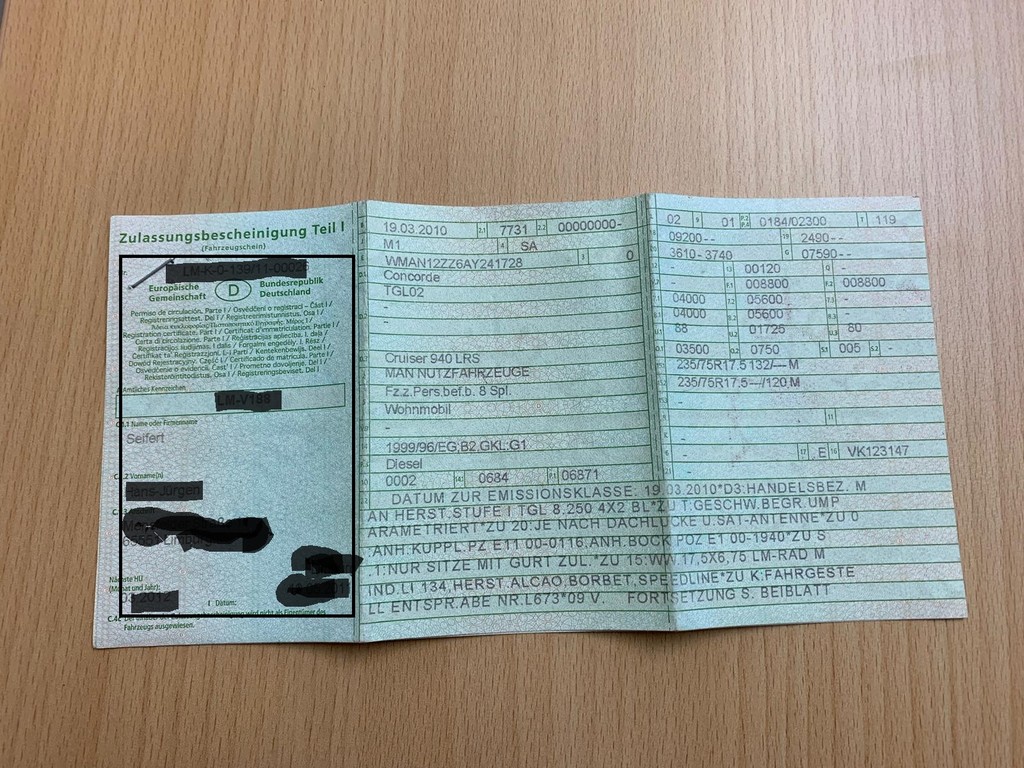 Zulassungsbescheinigung Teil I
(Fahrzeugschein)
Europäische Gemeinschaft
D
Bundesrepublik Deutschland
Permiso de circulación. Parte I / Osvědčení o registraci – Část I /
Registreringsattest. Del I / Registreerimistunnistus. Osa I /
Registration certificate. Part I / Certificat d'immatriculation. Partie I /
Carta di circolazione. Parte I / Reģistrācijas apliecība. I. daļa /
Registracijos liudijimas. I dalis / Forgalmi engedély. I. Rész /
Dowód Rejestracyjny. Część I / Certificado de matrícula. Parte I /
Osvedčenie o evidencii. Časť I / Prometno dovoljenje. Del I /
Rekisteröintitodistus. Osa I / Registreringsbeviset. Del I
Amtliches Kennzeichen
C.1.1 Name oder Firmenname
Seifert
Vorname(n)
Nächste HU
(Monat und Jahr):
I Datum:
C.4c Der Inhaber der Zulassungsbescheinigung wird nicht als Eigentümer des
Fahrzeugs ausgewiesen.
19.03.2010 2.1 7731 2.2 00000000-
M1 4 SA
WMAN12ZZ6AY241728 3 0
Concorde
TGL02
-
-
Cruiser 940 LRS
MAN NUTZFAHRZEUGE
Fz.z.Pers.bef.b. 8 Spl.
Wohnmobil
-
1999/96/EG;B2,GKL;G1
Diesel
0002 14.1 0684 P.1 06871
02 9 01 P.2 P.4 0184/02300 T 119
09200-- 19 2490--
3610-3740 G 07590--
- 13 00120 Q -
- F.1 008800 F.2 008800
04000 05600 -
04000 05600 -
88 01725 80
03500 0750 S.1 005 S.2 -
235/75R17.5 132/---M
235/75R17.5---/120 M
-
- 11
-
- 17 E 16 VK123147
-
DATUM ZUR EMISSIONSKLASSE: 19.03.2010*D3:HANDELSBEZ. M
AN HERST.STUFE I TGL 8.250 4X2 BL*ZU T:GESCHW.BEGR.UMP
ARAMETRIERT*ZU 20:JE NACH DACHLUCKE U.SAT-ANTENNE*ZU O
.ANH.KUPPL.PZ E11 00-0116,ANH.BOCK POZ E1 00-1940*ZU S
.1:NUR SITZE MIT GURT ZUL.*ZU 15:WW.17,5X6,75 LM-RAD M
IND.LI 134,HERST.ALCAO,BORBET,SPEEDLINE*ZU K:FAHRGESTE
LL ENTSPR.ABE NR.L673*09 V. FORTSETZUNG S. BEIBLATT